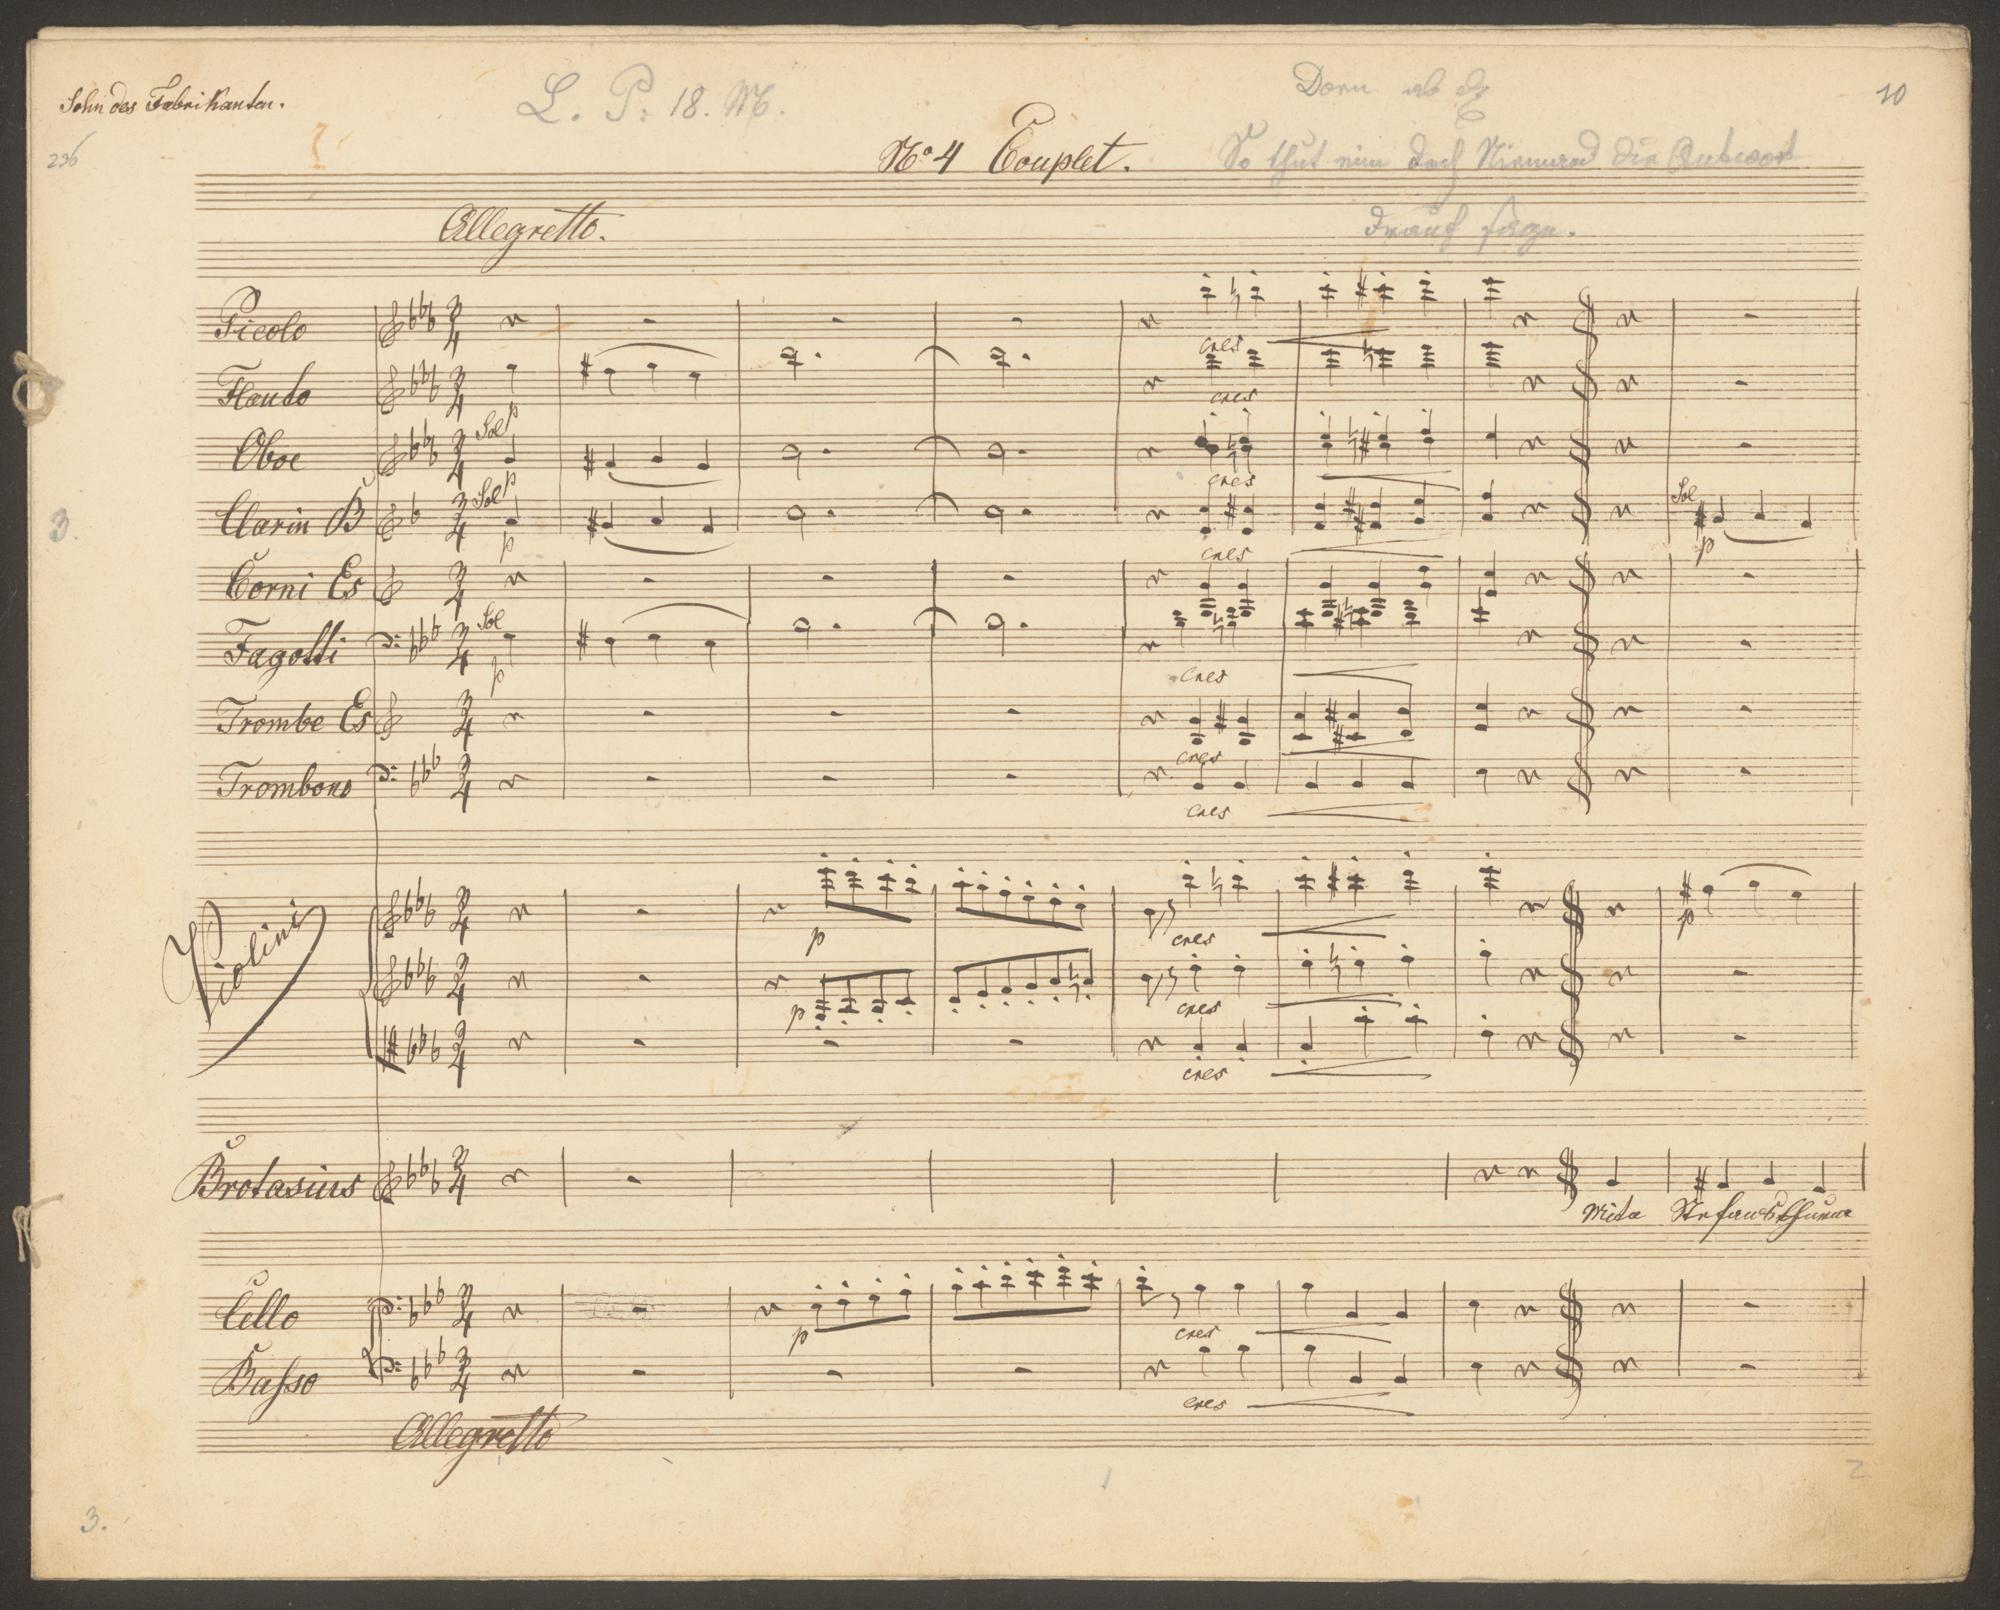 Sohn des Fabrikanten.
L. P. 18. M.
Dorn ab
10
236
No 4 Couplet.
So thut mim doch Niemand die Antwort
drauf sagn.
Allegretto.
Picolo
cres
Flauto
cres
Oboe
Sol p
p
cres
3.
Clarin B
Sol p
p
cres
Sol
p
Corni Es
Fagotti
Sol
p
cres
Trombe Es
cres
Trombono
cres
Violini
p
cres
p
p
cres
cres
Brotasius
Mita
Cello
p
cres
Basso
cres
Allegretto
1
2
3.